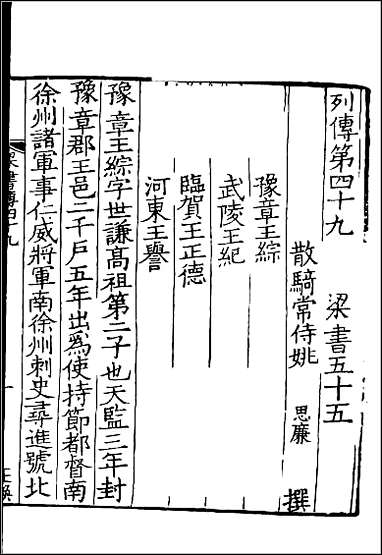 列傳第四十九 梁書五十五
散騎常侍姚 思廉 撰
豫章王綜
武陵王紀
臨賀王正德
河東王譽
豫章王綜字世謙髙祖第二子也天監三年封
豫章郡王邑二千戶五年出爲使持節都督南
徐州諸軍事仁威將軍南徐州刺史尋進號北
梁書傳四十九